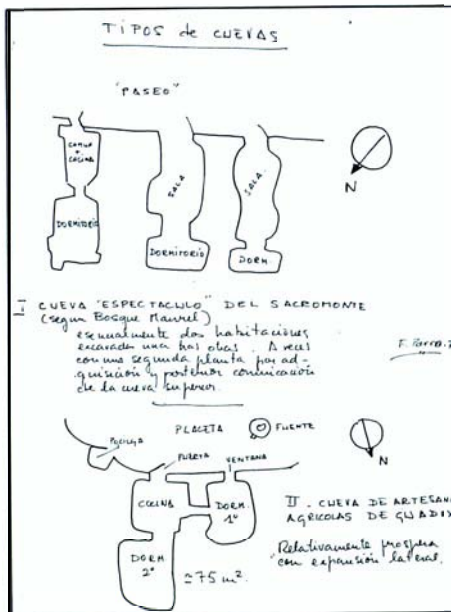 TIPOS de CUEVAS
"PASEO"
CAMA
+
COCINA
DORMITORIO
SALA
DORMITORIO
SALA
DORM.
N
I CUEVA "ESPECTACULO" DEL SACROMONTE
(segun Bosque Maurel)
esencialmente dos habitaciones
excavadas una tras otras. A veces
con una segunda planta por ad-
quisición y posterior comunicación
de la cueva superior.
PLACETA
FUENTE
POCILGA
PUERTA
VENTANA
N
COCINA
DORM.
1º
DORM
2º
≃75 m².
II. CUEVA DE ARTESANO
AGRICOLAS DE GUADIX
Relativamente prospera
con expansión lateral.